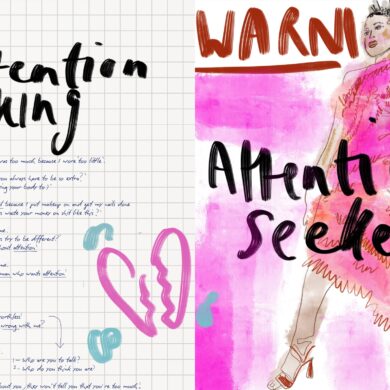 tention
KING
was too much, because I wore too little'
you always have to be so extra?'
ring your body to?'
because I put makeup on and get my nails done
waste your money on shit like this?'
me.
try to be different?'
attention
me.
who wants attention'
worthless'
wrong with me?
1 - Who are you to talk?
2 - Who do you think you are?
and you, they won't tell you that you're too much,
WARNI
Attenti
Seeke